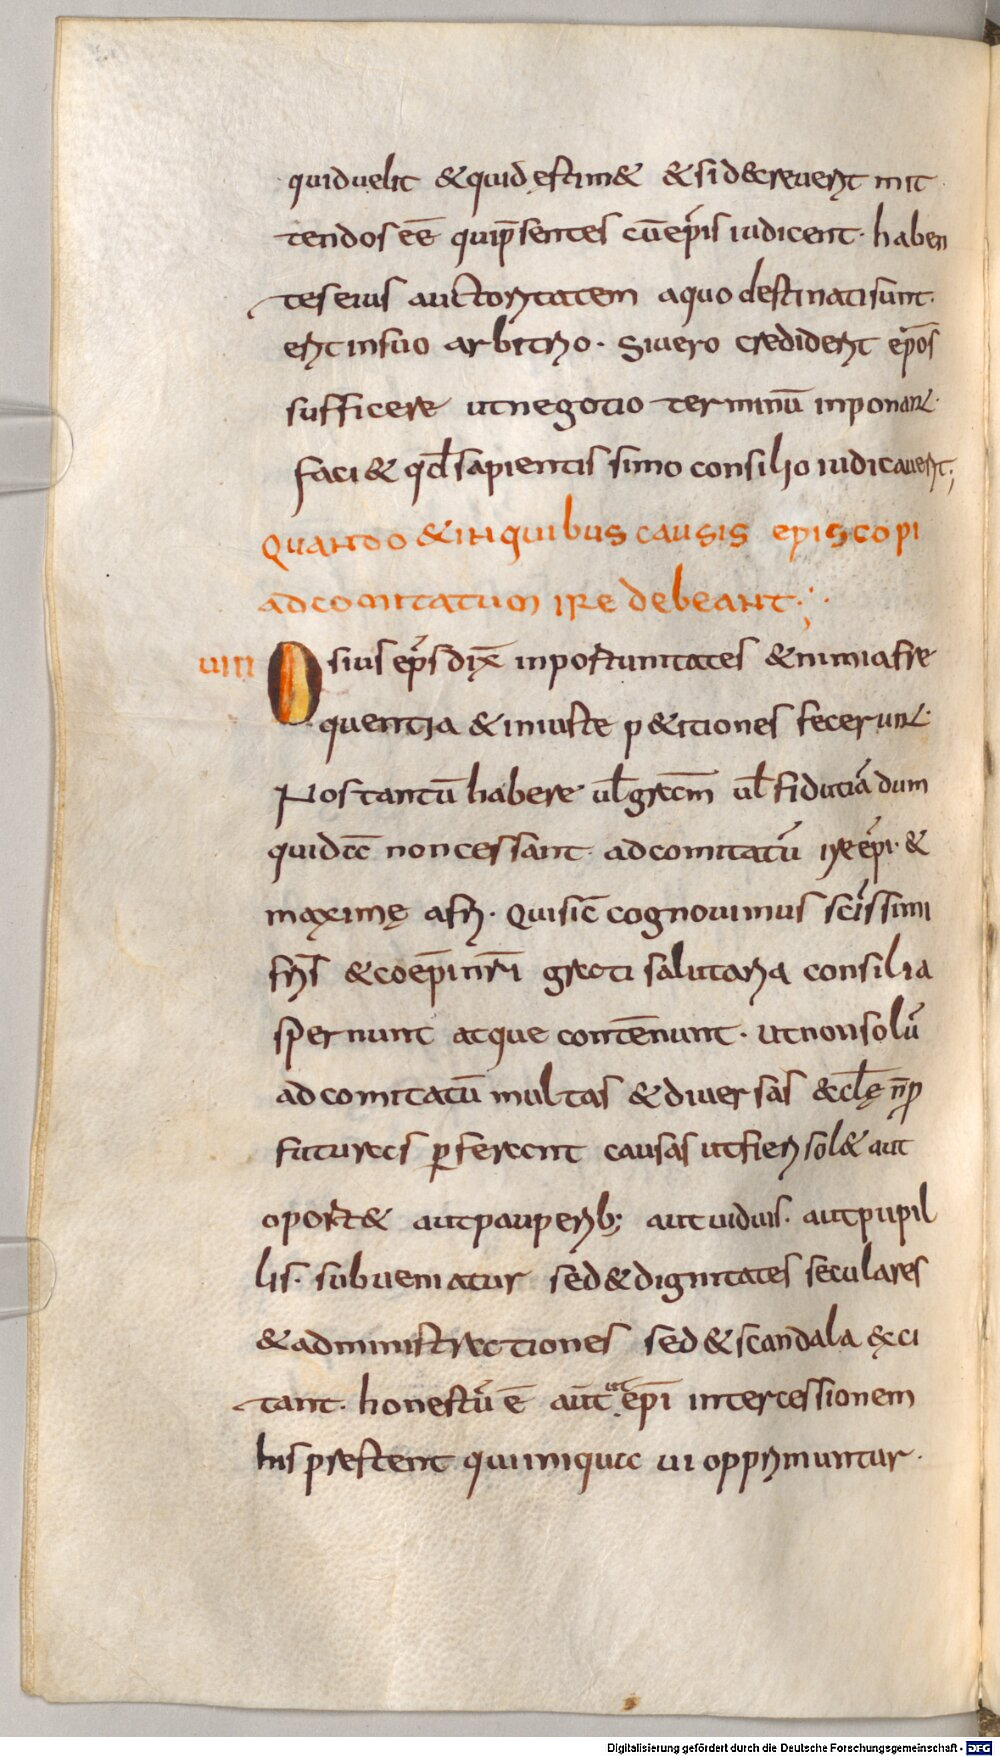 quid uelit & quid estim& & si d&creuerit mit
tendos eē qui p̄sentes cū ep̄is iudicent· haben
tes eius auctoritatem a quo destinati sunt·
erit in suo arbitrio· Si uero crediderit ep̄os
sufficere ut negotio terminū inponant·
faci& qd̄ sapientissimo consilio iudicauerit;
QUANDO & IN QUIBUS CAUSIS EPISCOPI
AD COMITATUM IRE DEBEANT;
uiii Osius ep̄s dix̄ inportunitates & nimia fre
quentia & iniuste p&itiones fecerunt·
Nos tantū habere ul̄ gratm̄ ul̄ fiduciā dum
quidā non cessant ad comitatū ire ep̄i· &
maximę afri· Qui sic̄ cognouimus sc̄issimi
fr̄is & coep̄i nr̄i grati salutaria consilia
spernunt atque contēnunt· ut non solū
ad comitatū multas & diuersas &cl̄ę n̄ p
futuras perferant causas ut fieri sol& aut
oport& aut pauperib; aut uiduis· aut pupil
lis· subueniatur sed & dignitates seculares
& administrationes sed & scandala excī
tant· honestū ē aūt ut ep̄i intercessionem
his prestent qui iniqua ui opprimuntur·
Digitalisierung gefördert durch die Deutsche Forschungsgemeinschaft - DFG